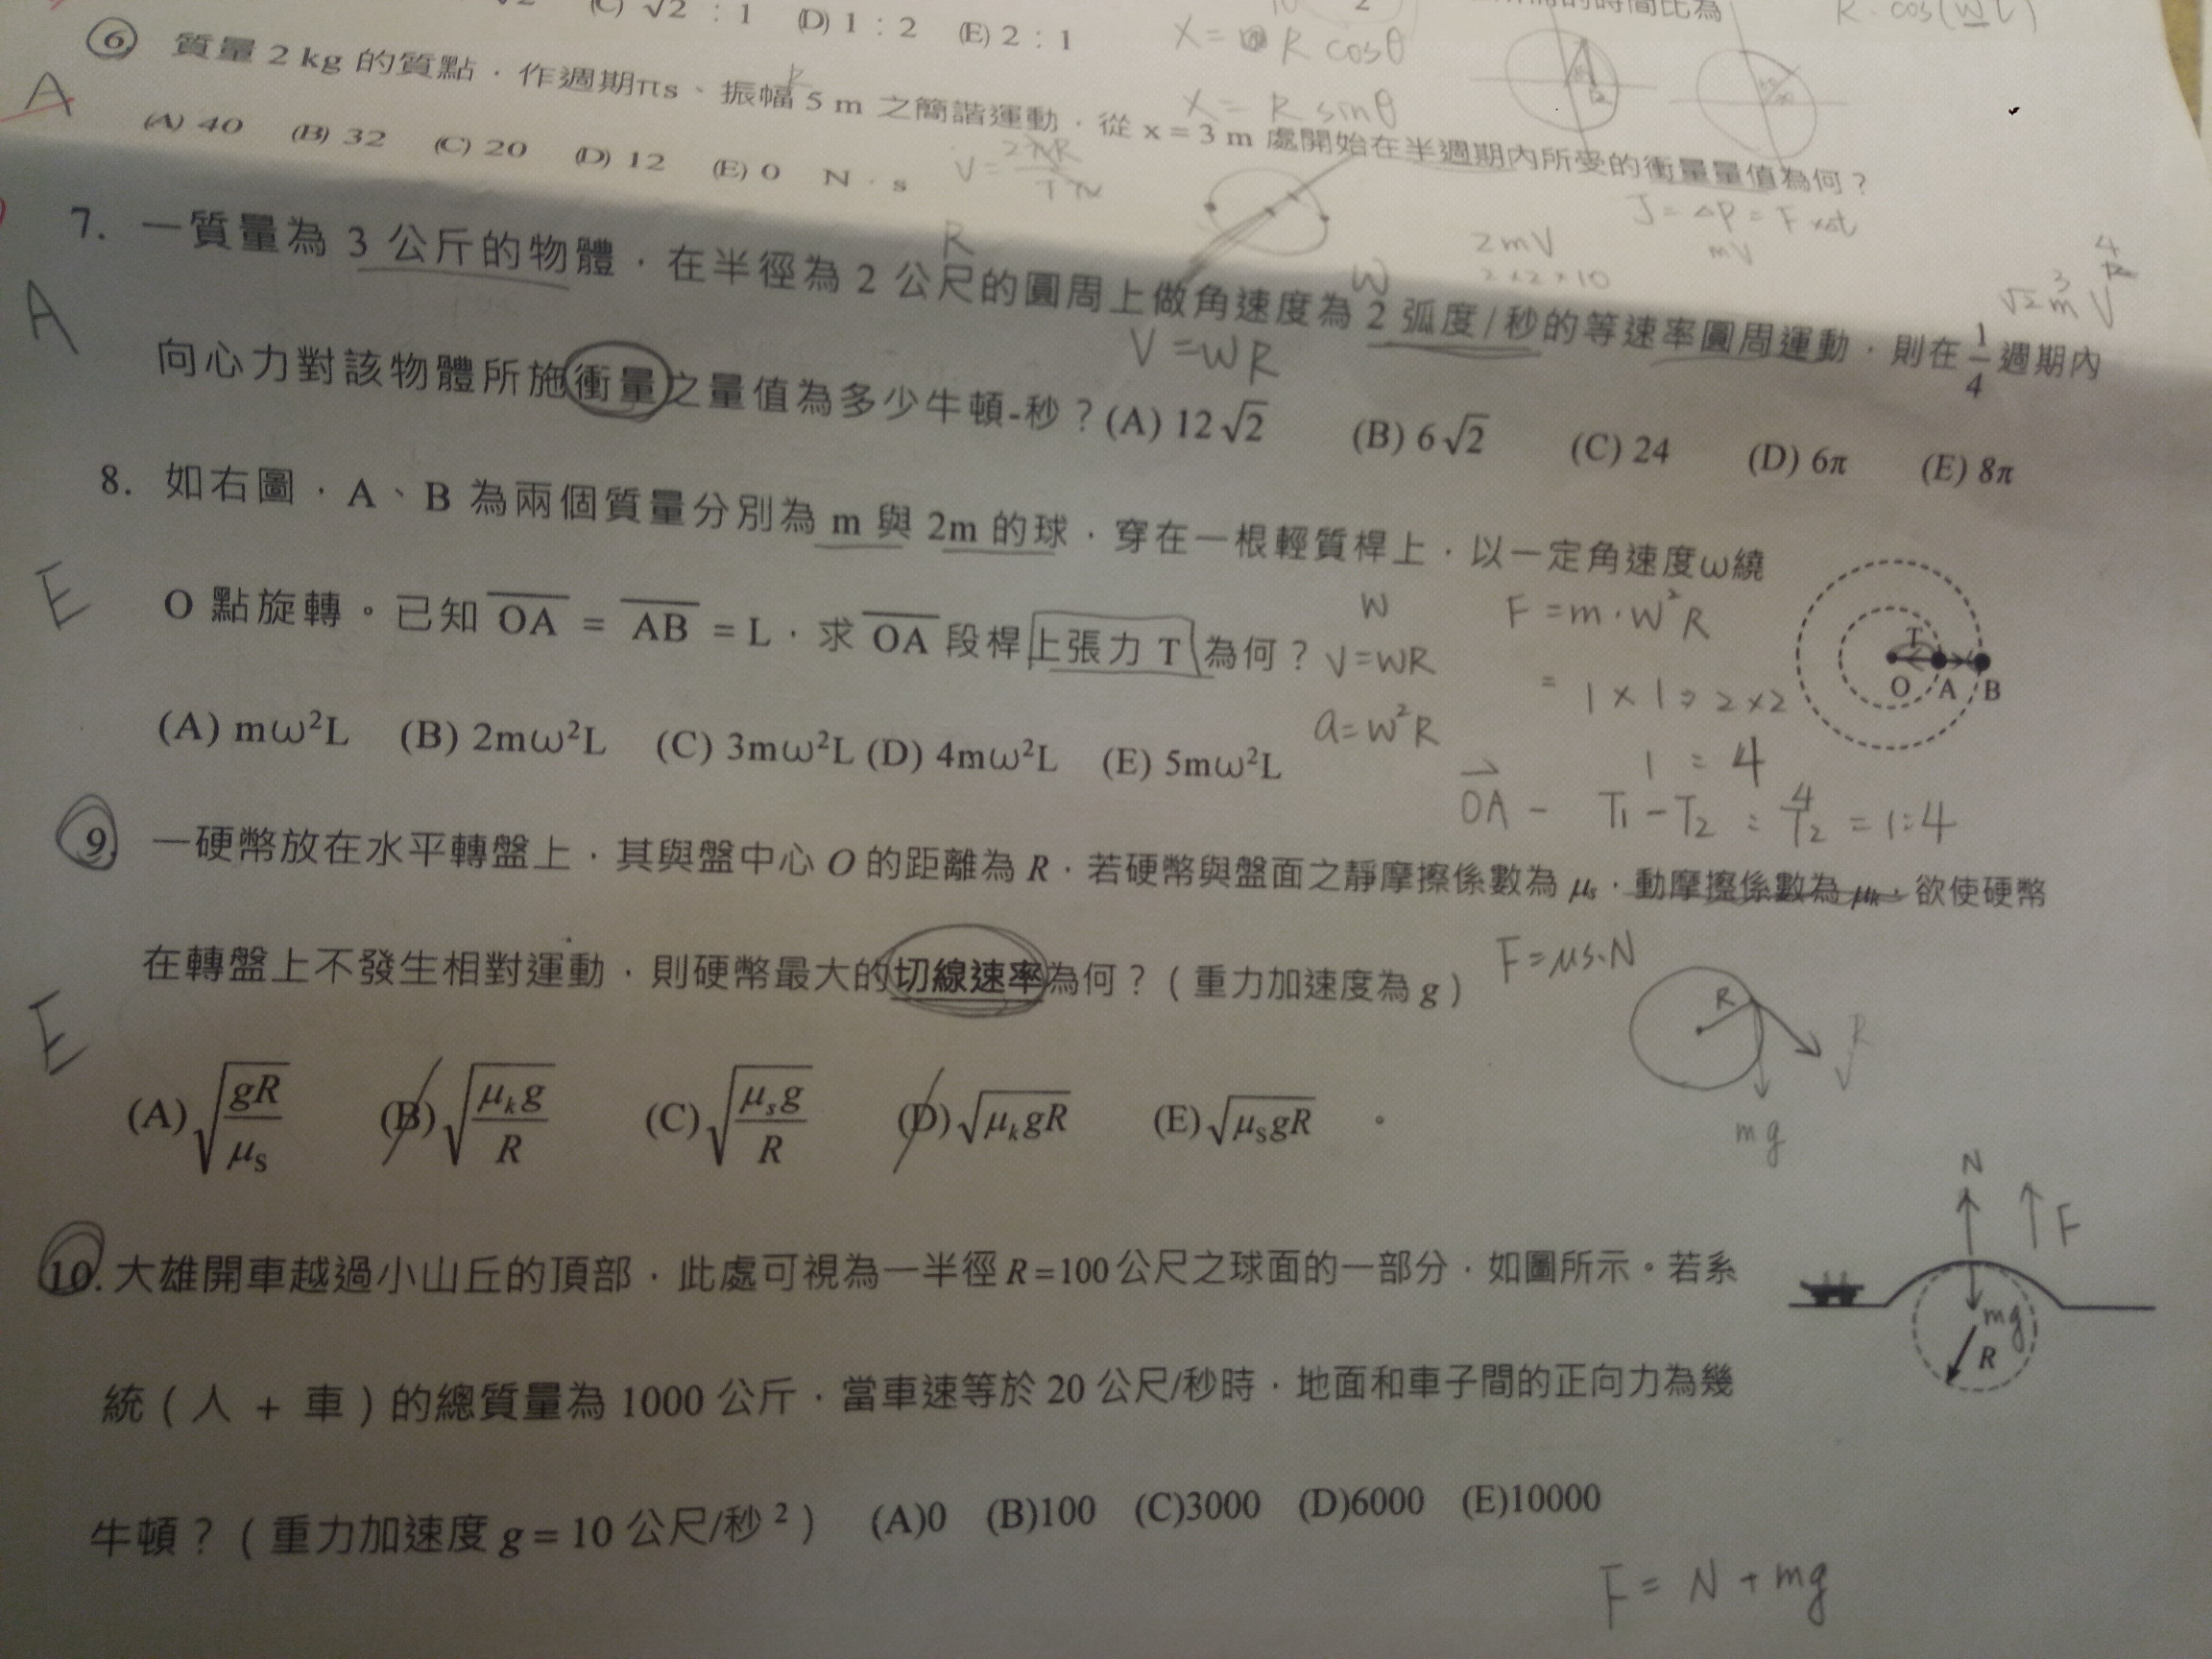 (C) √2 : 1 (D) 1 : 2 (E) 2 : 1
的時間比為
R · cos(wt)
X = R cosθ
6 質量 2 kg 的質點，作週期πs、振幅 5 m 之簡諧運動，從 x = 3 m 處開始在半週期內所受的衝量量值為何？
R
A
X = R sinθ
(A) 40 (B) 32 (C) 20 (D) 12 (E) 0 N · s
V = 2πR
J = ΔP = F × Δt
mV
2mV
2 × 2 × 10
7. 一質量為 3 公斤的物體，在半徑為 2 公尺的圓周上做角速度為 2 弧度/秒的等速率圓周運動，則在 1/4 週期內
R
W
√2 m V
3
4
A
V = WR
向心力對該物體所施衝量之量值為多少牛頓-秒？(A) 12√2 (B) 6√2 (C) 24 (D) 6π (E) 8π
8. 如右圖，A、B 為兩個質量分別為 m 與 2m 的球，穿在一根輕質桿上，以一定角速度ω繞
E
O 點旋轉。已知 OA = AB = L，求 OA 段桿上張力 T 為何？
W
V = WR
a = W²R
F = m · W²R
= 1 × 1 : 2 × 2
1 : 4
T
O A B
(A) mω²L (B) 2mω²L (C) 3mω²L (D) 4mω²L (E) 5mω²L
OA - T1 - T2 : 4/T2 = 1:4
9. 一硬幣放在水平轉盤上，其與盤中心 O 的距離為 R，若硬幣與盤面之靜摩擦係數為 μs，動摩擦係數為 μk，欲使硬幣
在轉盤上不發生相對運動，則硬幣最大的切線速率為何？（重力加速度為 g）
F = μs·N
E
R
mg
(A) √(gR/μs) (B) √(μkg/R) (C) √(μsg/R) (D) √μkgR (E) √μsgR 。
10. 大雄開車越過小山丘的頂部，此處可視為一半徑 R =100 公尺之球面的一部分，如圖所示。若系
N
F
mg
R
統（人 + 車）的總質量為 1000 公斤，當車速等於 20 公尺/秒時，地面和車子間的正向力為幾
牛頓？（重力加速度 g = 10 公尺/秒 ²） (A)0 (B)100 (C)3000 (D)6000 (E)10000
F = N + mg